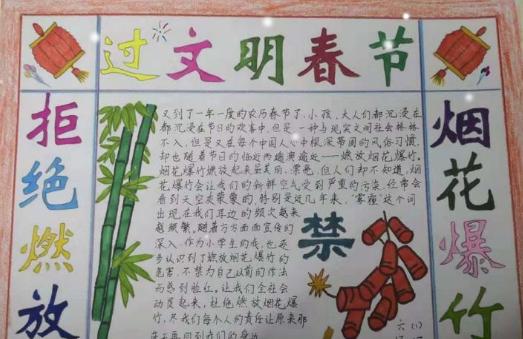 过文明春节
拒绝燃放
烟花爆竹
又到了一年一度的农历春节了,小孩、大人们都沉浸在
都沉浸在节日的欢喜中,但是一种与现实文明社会格格
不入,但是又在每个中国人心中根深蒂固的风俗习惯,
却也随着节日的临近而越演越近——燃放烟花爆竹。
烟花爆竹燃放起来虽美丽、漂亮,但人们却不知道,烟
花爆竹会让我们的新鲜空气受到严重的污染,经常会
看到天空灰蒙蒙的,特别是近几年来,“雾霾”这个词
出现在我们耳边的频次越来
越频繁,随着方方面面宣传的
深入,作为小学生的我,也逐
步认识到了燃放烟花爆竹的
危害,不禁为自己以前的作法
而感到脸红。让我们全社会
动员起来,杜绝燃放烟花爆
竹,尽我们每个人的责任让原来那
再回到我们的身边
禁
六(1)